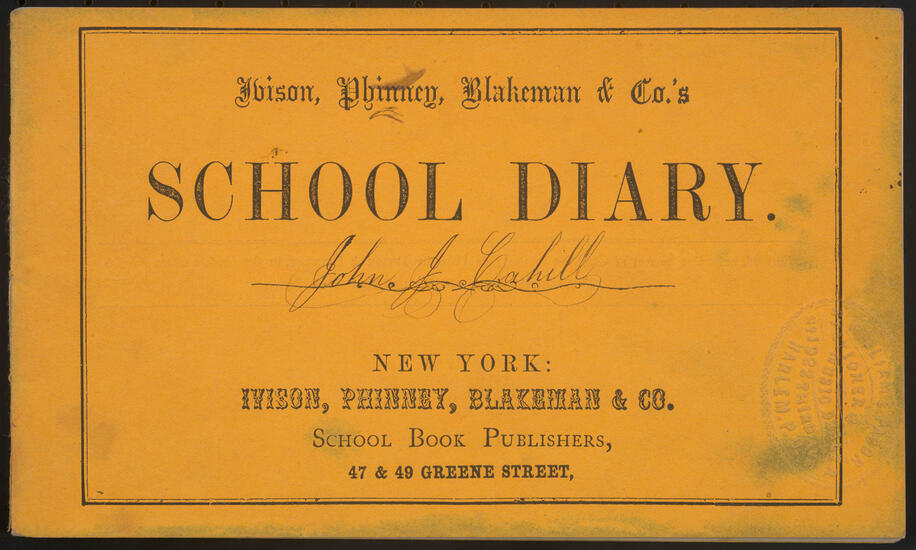 Ivison, Phinney, Blakeman & Co.'s
SCHOOL DIARY.
John J. Cahill
NEW YORK:
IVISON, PHINNEY, BLAKEMAN & CO.
SCHOOL BOOK PUBLISHERS,
47 & 49 GREENE STREET,
HARLEM